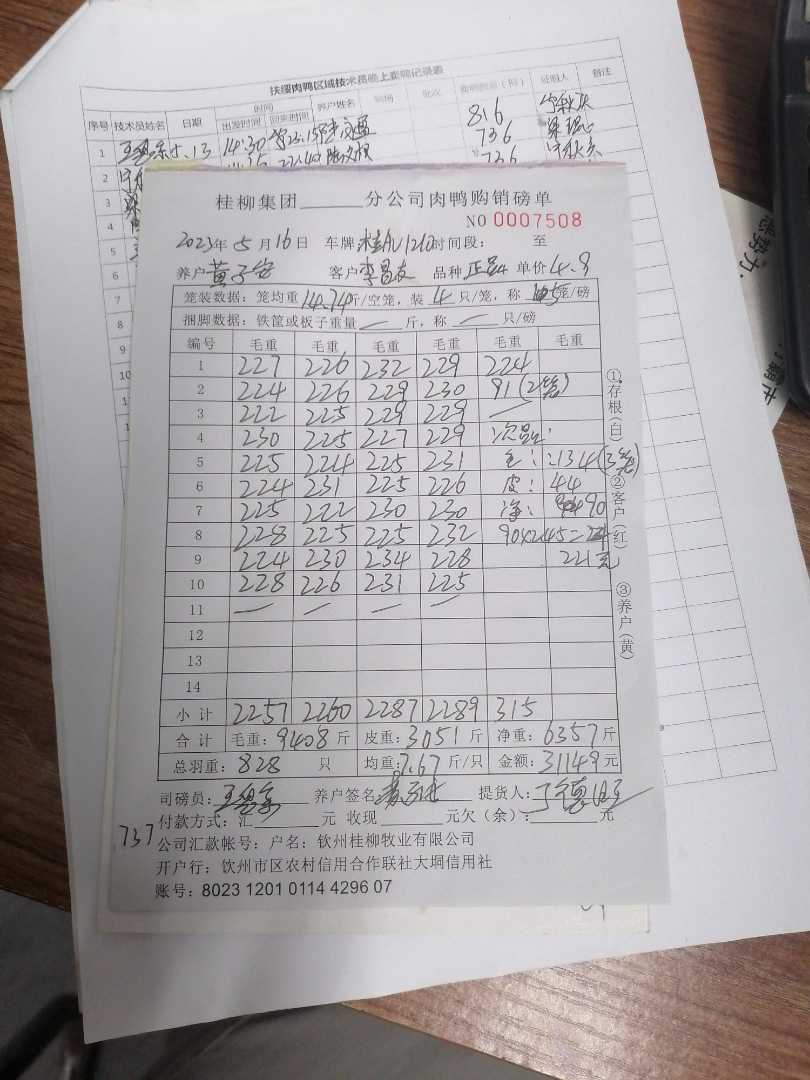 扶绥肉鸭区域技术员晚上卖鸭记录表
序号 技术员姓名 日期 时间 养户姓名 批次 证明人 备注
出发时间 回来时间
1 5.13 14:30 816
2 736
3 736
4
5
7
8
10
11
桂柳集团______分公司肉鸭购销磅单
NO 0007508
2023年5月16日 车牌:桂AU1210时间段: 至
养户黄子安 客户李昌友 品种正品 单价4.9
笼装数据:笼均重14.74斤/空笼,装4只/笼,称5笼/磅
捆脚数据:铁筐或板子重量—斤,称—只/磅
编号 毛重 毛重 毛重 毛重 毛重 毛重
1 227 226 232 229 224
2 224 226 229 230 91(2笼)
3 222 225 229 229 —
4 230 225 227 229 次品:
5 225 224 225 231 毛:134(3笼)
6 224 231 225 226 皮:44
7 225 222 230 230 净:90
8 228 225 225 232 90×2.45=
9 224 230 234 228 221元
10 228 226 231 225
11 — — — —
12
13
14
小计 2257 2260 2287 2289 315
合计 毛重:9408斤 皮重:3051斤 净重:6357斤
总羽重:828 只 均重:7.67斤/只 金额:31149元
司磅员: 养户签名 提货人:
付款方式:汇______元 收现______元欠(余):______元
737
公司汇款帐号:户名:钦州桂柳牧业有限公司
开户行:钦州市区农村信用合作联社大垌信用社
账号:8023 1201 0114 4296 07
①存根(白)②客户(红)③养户(黄)